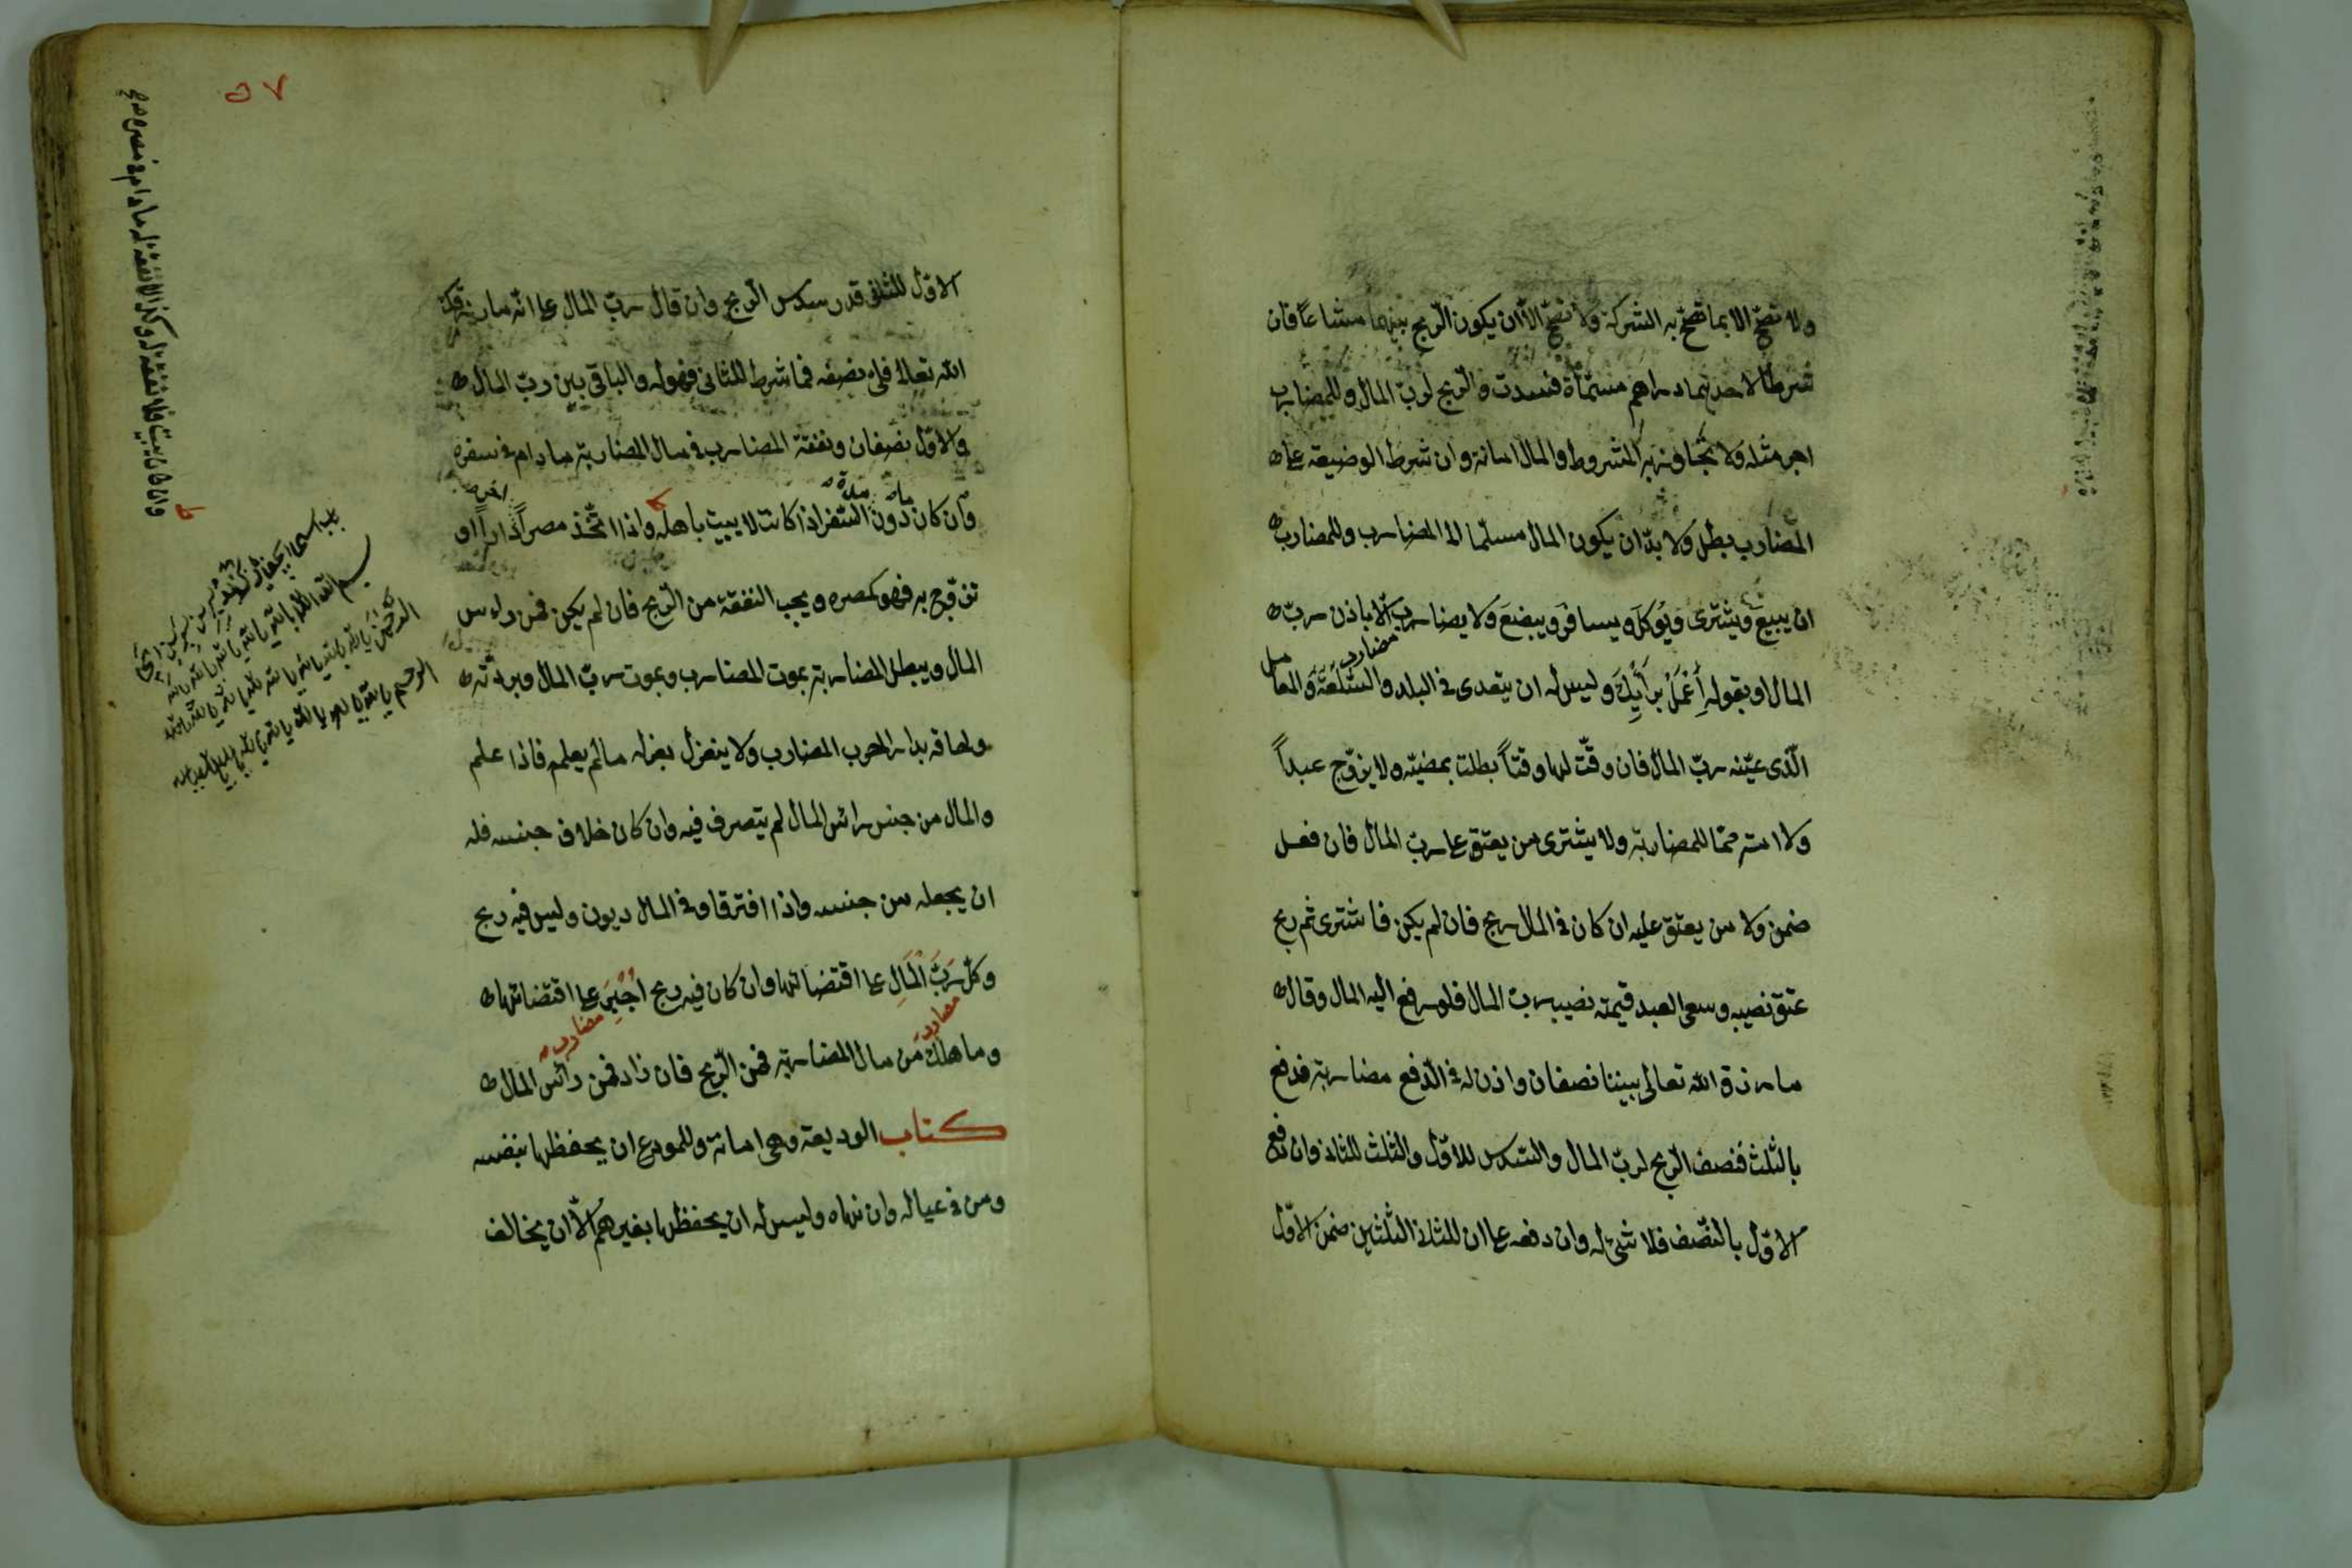 ولا تصحّ الا بما تصحّ به الشركة ولا تصحّ الاّ ان يكون الرّبح بينهما مشاعاً فان
شرطا لاحدهما دراهم مسمّاة فسدت والرّبح لربّ المال وللمضارب
اجر مثله ولا يتجاوز به المشروط والمال امانة وان شرط الوضيعة على
المضارب بطل ولا بدّ ان يكون المال مسلّما الى المضارب وللمضارب
ان يبيع ويشترى ويُوكلَ ويسافرَ ويبضعَ ولا يضارب الاّ باذن ربّ
مضارب
المال او بقوله أِعْمَلْ برَأيِكَ وليس له ان يتعدى فى البلد والسّلعَةَ والمعامل
الّذى عيّنه ربّ المال فان وقّت لها وقتاً بطلت بمضيّه ولا يزوّج عبداً
ولا امة مما للمضاربة ولا يشترى من يعتق على ربّ المال فان فعل
ضمن ولا من يعتق عليه ان كان فى المال ربح فان لم يكن فاشترى ثم ربح
عتق نصيبه وسعى العبد قيمة نصيب ربّ المال فلو رفع اليه المال وقال
ما رزق الله تعالى بيننا نصفان واذن له فى الدّفع مضاربة فدفع
بالثلث فنصف الرّبح لربّ المال والسّدس للاوّل والثلث للثانى وان دفع
الاوّل بالنّصف فلا شئ له وان دفعه على ان للثانى الثلثين ضمن الاوّل
٥٧
الاوّل للثانى قدر سدس الرّبح وان قال ربّ المال على انّه ما رزقك
الله تعالى فلى نصفه فما شرط للثانى فهو له والباقى بين ربّ المال
والاوّل نصفان ونفقة المضارب فى مال المضاربة ما دام فى سفره
وان كان دون السّفر اذا كانت لا يبيت باهله واذا اتّخذ مصراً داراً او
تزوّج به فهو كمصره ويجب النفقة من الرّبح فان لم يكن فمن رأس
المال ويبطل المضاربة بموت المضارب وبموت ربّ المال وبردّته
ولحاقه بدار الحرب المضارب ولا ينعزل بعزله ما لم يعلم فاذا علم
والمال من جنس رأس المال لم يتصرف فيه وان كان خلاف جنسه فله
ان يجعله من جنسه واذا افترقا وفى المال ديون وليس فيه ربح
وكل ربّ المال على اقتضائها وان كان فيه ربح اُجْبِرَ على اقتضائها
مضارب
مضارب
وما هلك من مال المضاربة فمن الرّبح فان زاد فمن رأس المال
كتاب الوديعة وهى امانة وللمودع ان يحفظها بنفسه
ومن فى عياله وان نهاه وليس له ان يحفظها بغيرهم الاّ ان يخالف
بسم الله
الرحمن
الرحيم